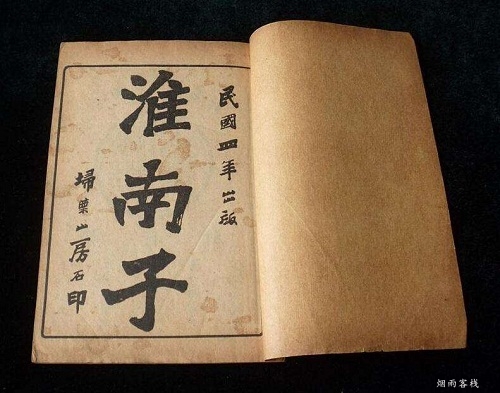 民國四年出版
淮南子
埽葉山房石印
烟雨客栈